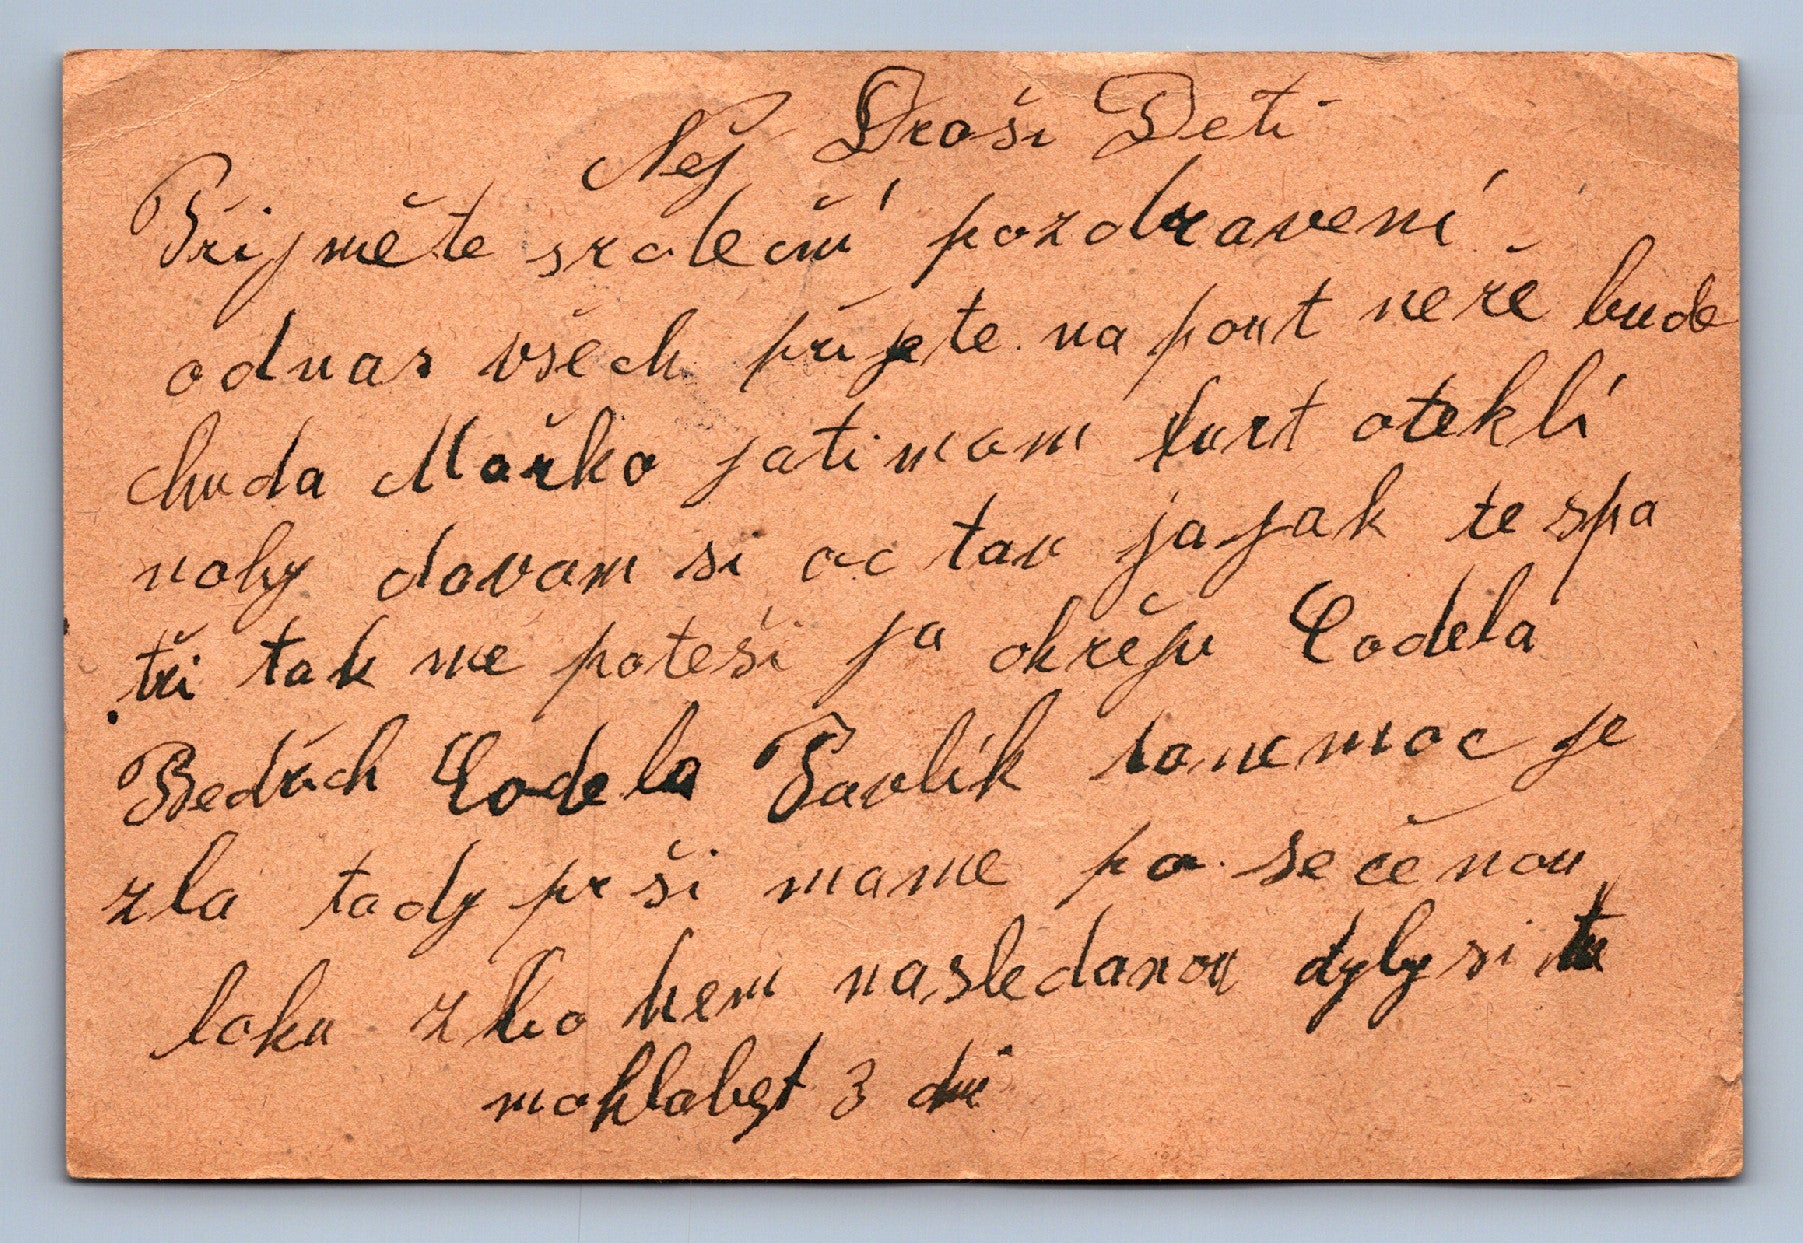 Nej Droši Deti
Přijměte srdeční pozdravení
odnas všech přijete na pout neře bude
chuda Mařka jatimam furt oteklí
nohy davam si oc tan ja jak te spa
tři tak me poteši ja okřeju Codela
Bedřich Codela Pavlík tonemoc je
zla tady prši mame po sečenou
loku zho hem nasledanou dyby si tu
mohla byt 3 dni